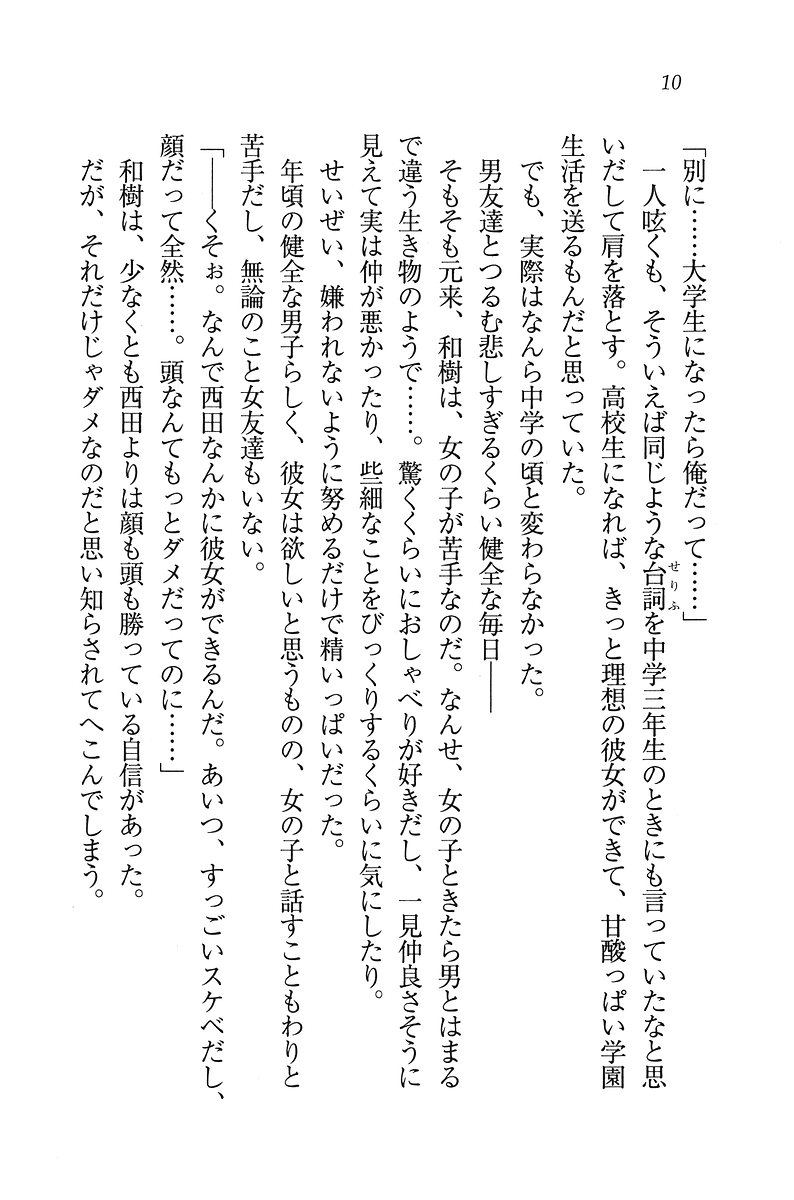 10
「別に……大学生になったら俺だって……」
一人呟くも、そういえば同じような台詞を中学三年生のときにも言っていたなと思
せりふ
いだして肩を落とす。高校生になれば、きっと理想の彼女ができて、甘酸っぱい学園
生活を送るもんだと思っていた。
でも、実際はなんら中学の頃と変わらなかった。
男友達とつるむ悲しすぎるくらい健全な毎日――
そもそも元来、和樹は、女の子が苦手なのだ。なんせ、女の子ときたら男とはまる
で違う生き物のようで……。驚くくらいにおしゃべりが好きだし、一見仲良さそうに
見えて実は仲が悪かったり、些細なことをびっくりするくらいに気にしたり。
せいぜい、嫌われないように努めるだけで精いっぱいだった。
年頃の健全な男子らしく、彼女は欲しいと思うものの、女の子と話すこともわりと
苦手だし、無論のこと女友達もいない。
「――くそぉ。なんで西田なんかに彼女ができるんだ。あいつ、すっごいスケベだし、
顔だって全然……。頭なんてもっとダメだってのに……」
和樹は、少なくとも西田よりは顔も頭も勝っている自信があった。
だが、それだけじゃダメなのだと思い知らされてへこんでしまう。